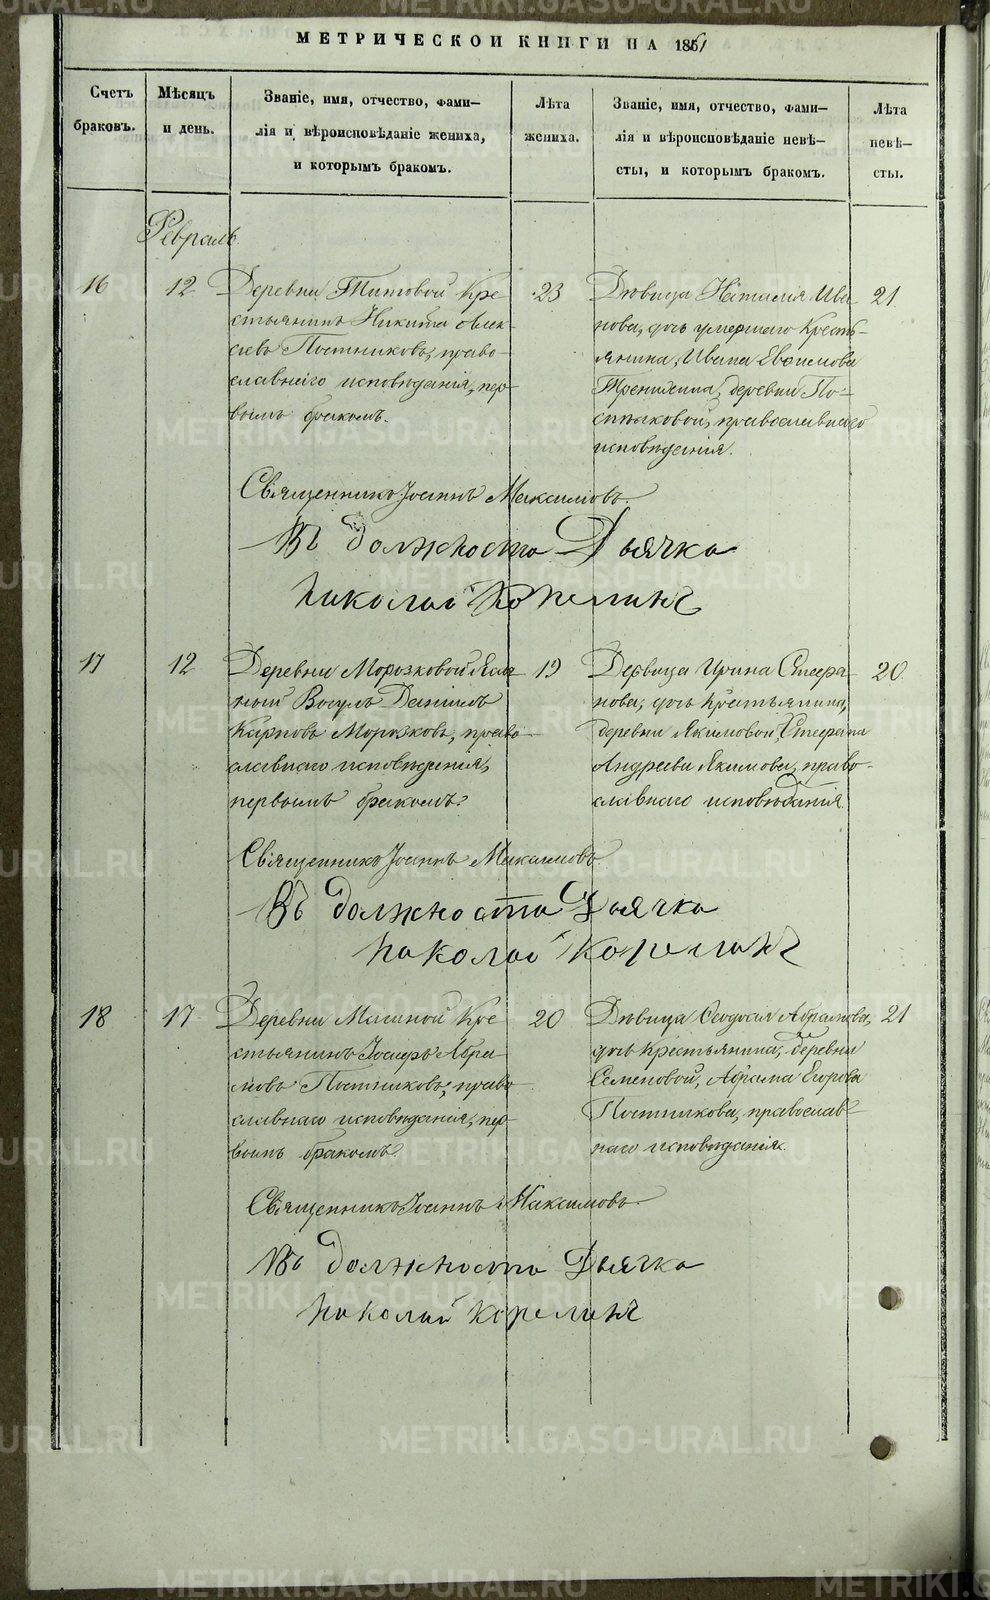 МЕТРИЧЕСКОЙ КНИГИ НА 1861
Счетъ браковъ.
Мѣсяцъ и день.
Званіе, имя, отчество, фами-
лія и вѣроисповѣданіе жениха,
и которымъ бракомъ.
Лѣта жениха.
Званіе, имя, отчество, фами-
лія и вѣроисповѣданіе невѣ-
сты, и которымъ бракомъ.
Лѣта невѣ-
сты.
Февраль
16
12
Деревни Титовой Кре
стьянинъ Никита Алек
сѣевъ Постниковъ, право-
славнаго исповѣданія, пер-
вымъ бракомъ.
23
Дѣвица Наталія Ива
нова, дочь умершаго Кресть-
янина, Ивана Евфимова
деревни По-
православнаго
исповѣданія.
21.
Священникъ Іоаннъ Максимовъ.
Въ должности Дьячка
Николай Корелинъ
17
12
Деревни Морозковой
Даніилъ
Карповъ Морозковъ, право
славнаго исповѣданія,
первымъ бракомъ.
19
Дѣвица Ирина Стефа-
нова, дочь Крестьянина,
деревни Якимовой, Стефана
Андреева Якимова, право-
славнаго исповѣданія.
20.
Священникъ Іоаннъ Максимовъ.
Въ должности Дьячка
Николай Корелинъ
18
17
Деревни Кре
стьянинъ Іосифъ Абра-
мовъ Постниковъ, право
славнаго исповѣданія, пер-
вымъ бракомъ.
20
Дѣвица Ѳеодосія Абрамова,
дочь Крестьянина, деревни
Семеновой, Абрама Егорова
Постникова, православ-
наго исповѣданія.
21
Священникъ Іоаннъ Максимовъ.
Въ должности Дьячка
Николай Корелинъ
METRIKI.GASO-URAL.RU